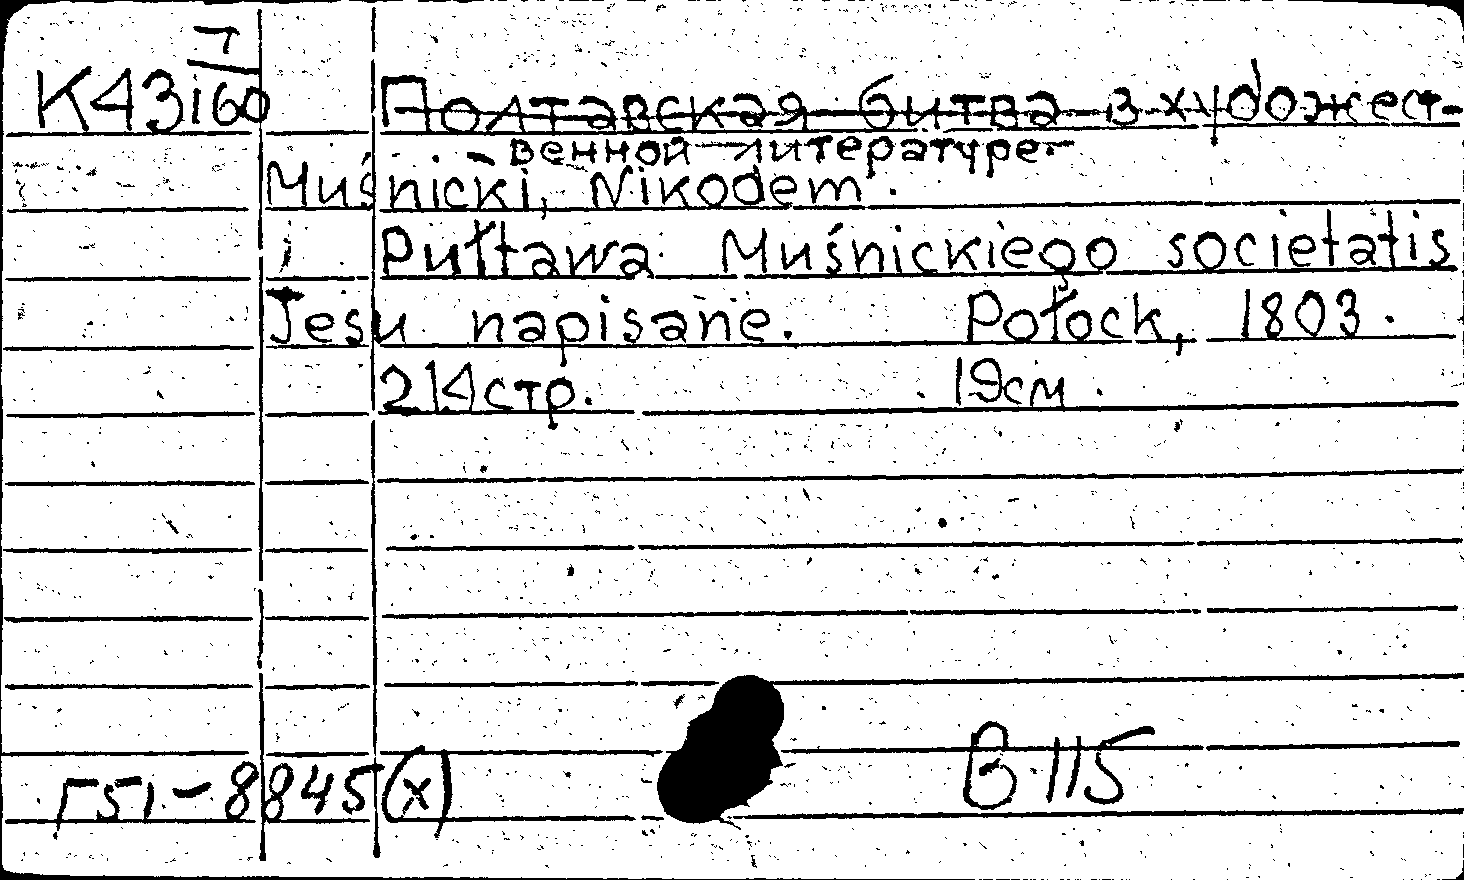 К43 7/160
Полтавская битва в художест-
венной литературе.
Muśnicki, Nikodem.
Pułtawa Muśnickiego societatis
Jesu napisane. Połock, 1803.
214стр. 19см.
Г51-8845(х) В 115